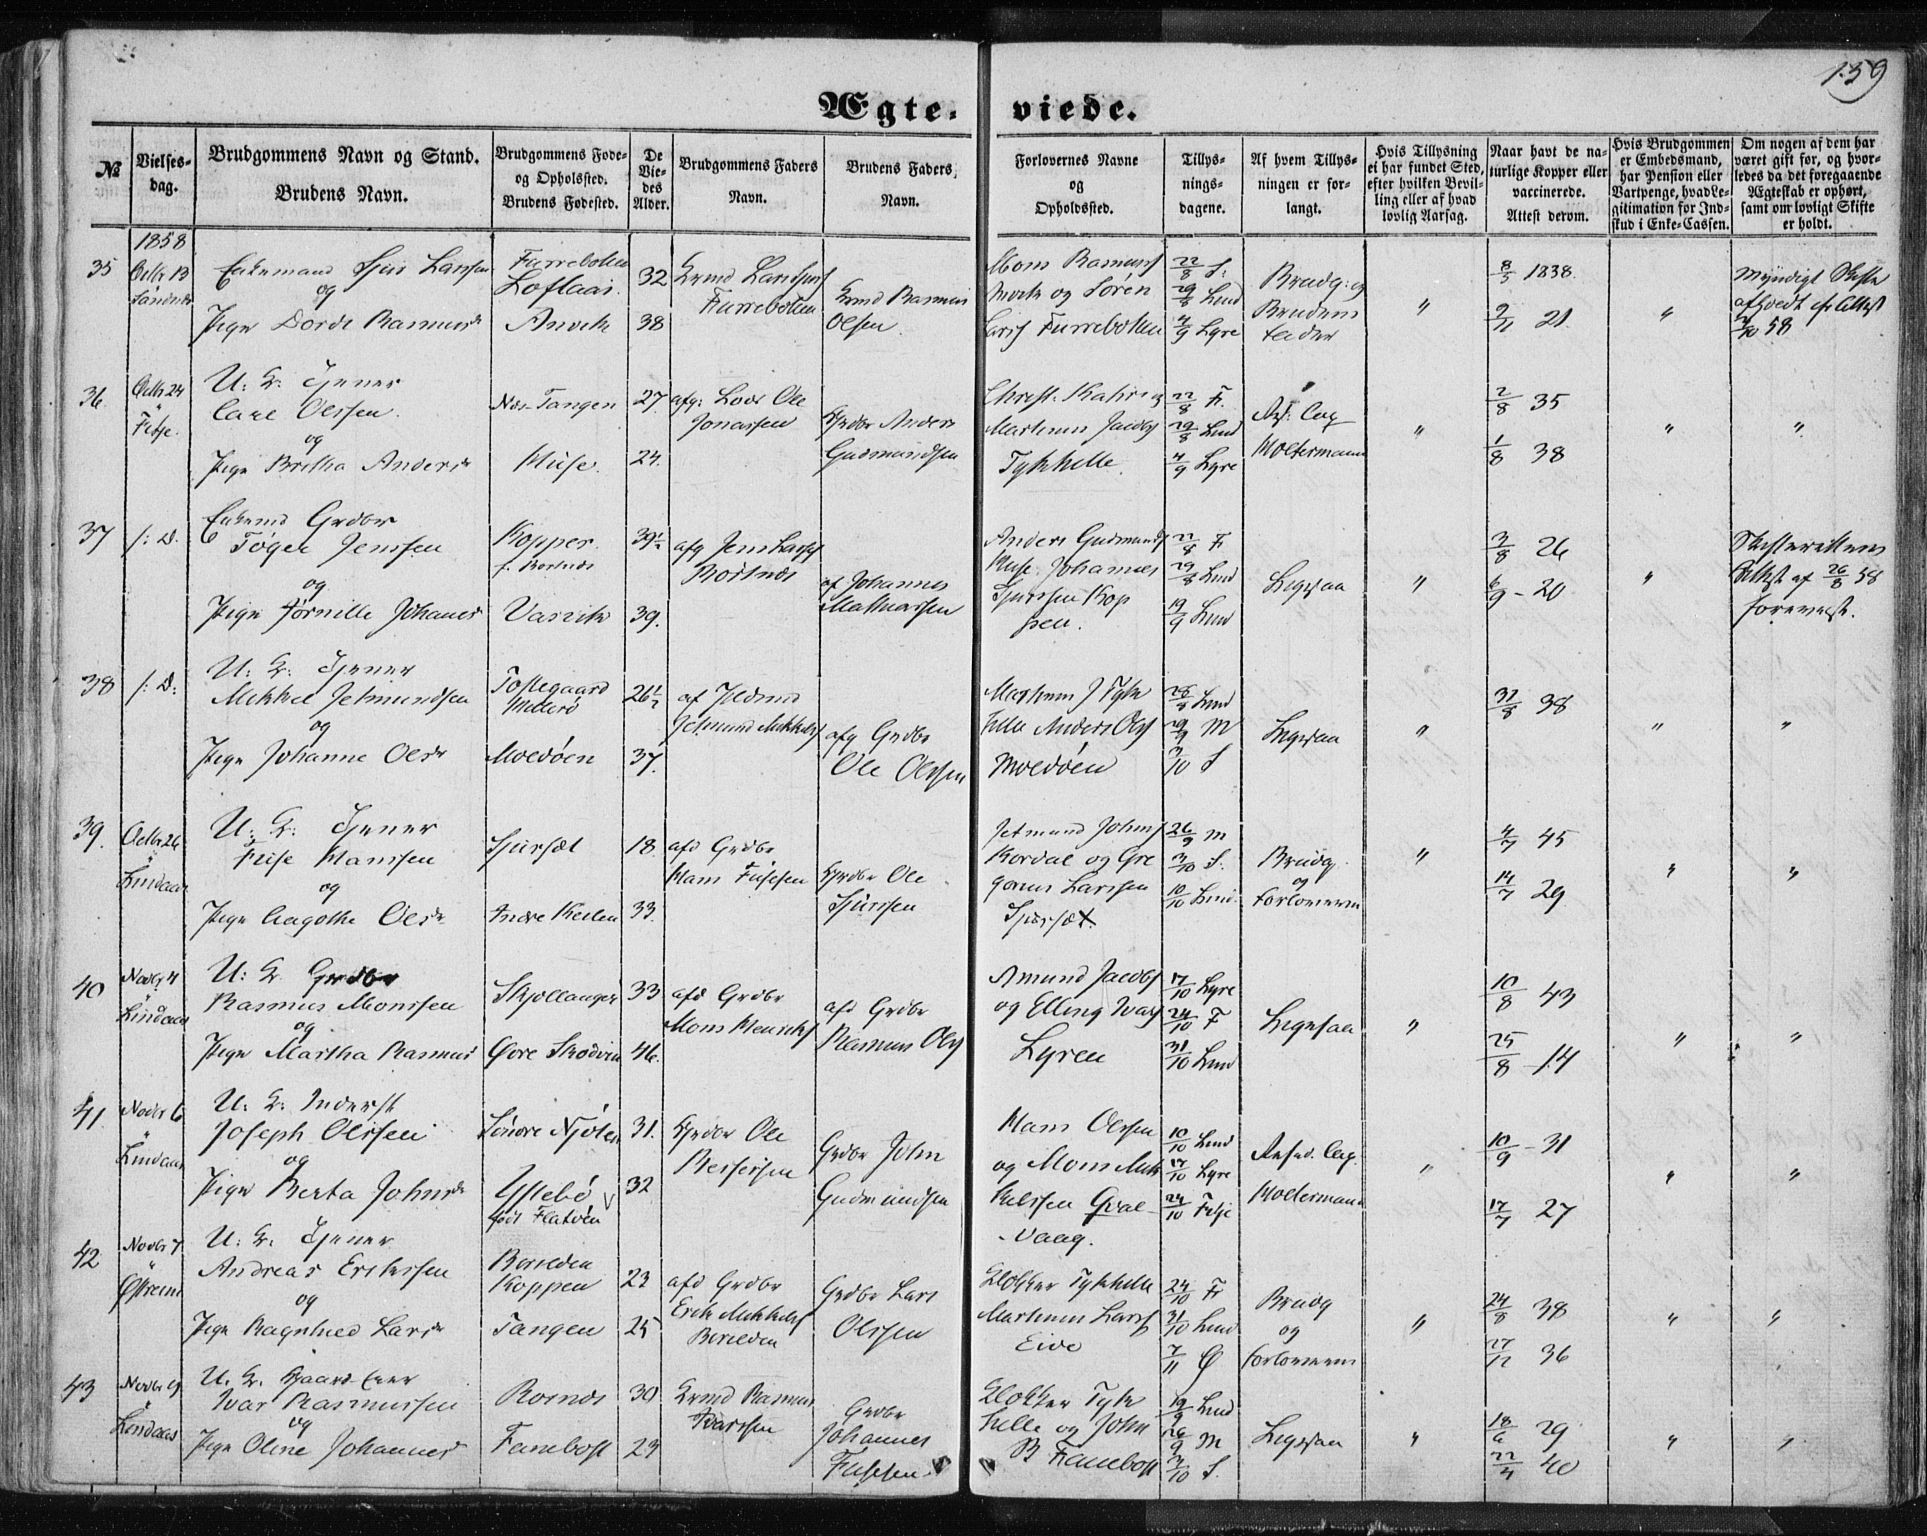 159
Ægte-viede.
№
Vielses-dag.
Brudgommens Navn og Stand.
Brudens Navn.
Brudgommens Føde- og Opholdssted.
Brudens Fødested.
De Viedes Alder.
Brudgommens Faders Navn.
Brudens Faders Navn.
Forlovernes Navne og Opholdssted.
Tillysningsdagene.
Af hvem Tillysningen er forlangt.
Hvis Tillysning ei har fundet Sted, efter hvilken Bevilling eller af hvad lovlig Aarsag.
Naar havt de naturlige Kopper eller vaccinerede. Attest derom.
Hvis Brudgommen er Embedsmand, har Pension eller Vartpenge, hvad Legitimation for Indskud i Enke-Cassen.
Om nogen af dem har været gift før, og hvorledes da det foregaaende Ægteskab er ophørt, samt om lovligt Skifte er holdt.
1858
35
Octbr 13
Enkemand Sjur Larssen
og
Pige Dorde Rasmusdr
Furrebotten
Loflaas
Anvik
32
38
Furrebotten
Grmd Rasmus
Olsen
Mons Rasmuss
Anvik og Søren
Larss Furrebotten
22/8 S:
29/8 Lind
4/9 Lyre
Brudg: og
Brudens
Fader
"
8/5 1838.
9/11 21
"
Myndigt Skifte
36
Octbr 24
Fedje.
U: K: Tjener
Carl Olssen
og
Pige Britha Andersdr
Tangen
Huse.
27
24.
afg: Lods Ole
Jonassen
Grdbr Anders
Gudmundsen
Martinus Jacobs
Tykhelle
22/8 F.
29/8 Lind
4/9 Lyre
Ansf: Cap
Woltermann
"
2/8 35
1/8 38
"
"
37
/: D.
Enkemd Grdbr
Tøger Jenssen
og
Pige Jørnille Johansdr
Kopper
Vasvik
39½
39.
afg Jens Larss
Børtnæs
af Johannes
Mathiassen
Anders Gudmunds
Huse. Johannes
Sjurssen Kop
pen.
22/8 F
29/8 Lind
19/9 Lind
Ligesaa
"
3/8 26
6/9 - 20
"
Skifterettens
Attest af 26/8 58
forevist.
38
/: D:
U: K: Tjener
Mikkel Jetmundsen
og
Pige Johanne Olsdr
Toftegaard
Moldøen
26½
37.
Jetmund Mikkels
afg Grdbr
Ole Olssen
Martinus J Tyk
helle Anders Ols
Moldøen
Lind
M
3/10 S
Ligesaa
"
31/8 38
"
"
39.
Octbr 26
Lindaas
U: K: Tjener
Hanssen
og
Pige Aagothe Olsdr
Sjursæt
Indre Keilen
18
33.
afd Grdbr
Hans
Grdbr Ole
Sjurssen
Jetmund Johns
Kordal og Gre
gorius Larssen
Sjursæt.
26/9 M
3/10 S.
10/10 Lind
Brudg.
og
Forloverne
"
4/7 45
14/7 29
"
"
40
Novbr 4
Lindaas
U: K. Grdbr
Rasmus Monssen
og
Pige Martha Rasmusd
Skjellanger
Øvre Skodvin
33
46.
afd Grdbr
Mons Henriks
afd Grdbr
Rasmus Ols
Amund Jacobs
og Elling Ivars
Lyren
17/10 Lyre
24/10 F
31/10 Lind
Ligesaa
"
10/8 43
25/8 - 14
"
"
41
Novbr 6
Lindaas
U: K: Inderst
Joseph Olssen
og
Pige Berta Johnsdr
Søndre Njøten
Ystebø
født Flatøen
31.
32
Grdbr Ole
Grdbr John
Gudmundsen
Hans Olssen
og Mons Mik
kelssen Qval-
vaag.
10/10 Lind
17/10 Lyre
24/10 Fedje
Ansf. Cap.
Woltermann
"
10/9 - 31
17/7 27
"
"
42
Novbr 7
Østreim
U: K: Tjener
Andreas Erikssen
og
Pige Ragnhild Larsdr
Borilden
Koppen
Tangen
23
25
afd Grdbr
Erik Mikkels
Borilden
Grdbr Lars
Olssen
Klokker Tykhelle
Martinus Larss
Eide
24/10 F
31/10 Lind
7/11 Ø
Brudg
og
Forloverne
"
24/8 38
27/12 36
"
"
43
Novbr 9
Lindaas
U. K. Gaard Eier
Ivar Rasmussen
og
Pige Oline Johannesd
Rosnæs
Fanebost
30
29
Grmd Rasmus
Ivarssen
Grdbr
Johannes
Klokker Tyk
helle og John
B Fanebost
19/9 Lind
26/9 M
3/10 S.
Ligesaa
"
18/6 29
22/4 40
"
"